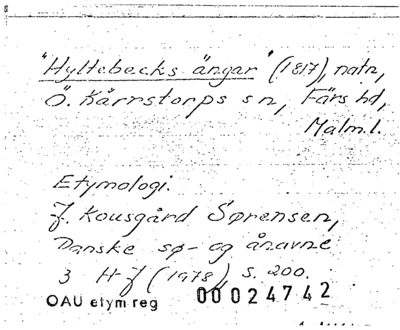 "Hyltebecks ängar" (1817), natn,
Ö. Kärrstorps sn, Färs hd,
Malm. l.
Etymologi.
J. Kousgård Sørensen,
Danske sø- og ånavne
3 H-J (1978) s. 200.
OAU etym reg 00024742